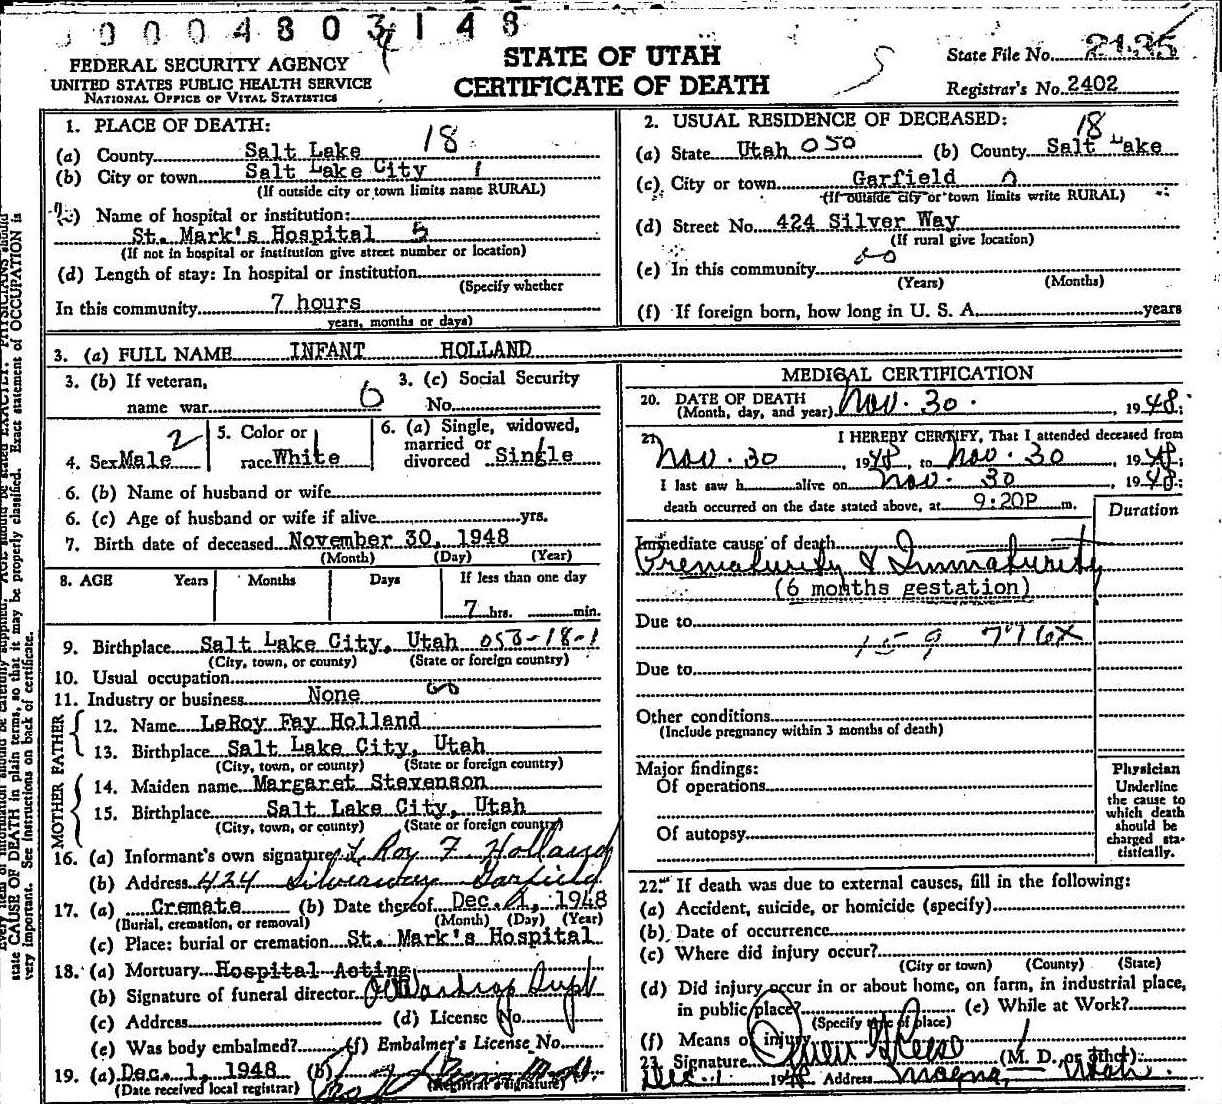 0004803148
FEDERAL SECURITY AGENCY
UNITED STATES PUBLIC HEALTH SERVICE
NATIONAL OFFICE OF VITAL STATISTICS
STATE OF UTAH
CERTIFICATE OF DEATH
State File No. 2435
Registrar's No. 2402
1. PLACE OF DEATH:
(a) County Salt Lake 18
(b) City or town Salt Lake City 1
(If outside city or town limits name RURAL)
(c) Name of hospital or institution:
St. Mark's Hospital 5
(If not in hospital or institution give street number or location)
(d) Length of stay: In hospital or institution
(Specify whether
In this community 7 hours
years, months or days)
2. USUAL RESIDENCE OF DECEASED:
18
(a) State Utah 050 (b) County Salt Lake
(c) City or town Garfield 0
(If outside city or town limits write RURAL)
(d) Street No. 424 Silver Way
(If rural give location)
(e) In this community
(Years) (Months)
(f) If foreign born, how long in U. S. A. years
3. (a) FULL NAME INFANT HOLLAND
3. (b) If veteran,
name war
3. (c) Social Security
No.
4. Sex Male 2
5. Color or
race White 1
6. (a) Single, widowed,
married or
divorced Single
6. (b) Name of husband or wife
6. (c) Age of husband or wife if alive yrs.
7. Birth date of deceased November 30, 1948
(Month) (Day) (Year)
8. AGE Years Months Days If less than one day
7 hrs. min.
9. Birthplace Salt Lake City, Utah 053-18-1
(City, town, or county) (State or foreign country)
10. Usual occupation
11. Industry or business None
FATHER
12. Name LeRoy Fay Holland
13. Birthplace Salt Lake City, Utah
(City, town, or county) (State or foreign country)
MOTHER
14. Maiden name Margaret Stevenson
15. Birthplace Salt Lake City, Utah
(City, town, or county) (State or foreign country)
16. (a) Informant's own signature L Roy F Holland
(b) Address 424 Silverway Garfield
17. (a) Cremate (b) Date thereof Dec. 1, 1948
(Burial, cremation, or removal) (Month) (Day) (Year)
(c) Place: burial or cremation St. Mark's Hospital
18. (a) Mortuary Hospital Acting
(b) Signature of funeral director Wardrop Supt
(c) Address (d) License No.
(e) Was body embalmed? (f) Embalmer's License No.
19. (a) Dec. 1, 1948 (b)
(Date received local registrar) (Registrar's signature)
MEDICAL CERTIFICATION
20. DATE OF DEATH
(Month, day, and year) Nov. 30. , 1948;
21. I HEREBY CERTIFY, That I attended deceased from
Nov. 30 , 1948, to Nov. 30 , 1948;
I last saw h alive on Nov. 30 , 1948;
death occurred on the date stated above, at 9:20P m.
Duration
Immediate cause of death
Prematurity & Immaturity
(6 months gestation)
Due to
159 776X
Due to
Other conditions
(Include pregnancy within 3 months of death)
Major findings:
Of operations
Of autopsy
Physician
Underline
the cause to
which death
should be
charged sta-
tistically.
22. If death was due to external causes, fill in the following:
(a) Accident, suicide, or homicide (specify)
(b) Date of occurrence
(c) Where did injury occur?
(City or town) (County) (State)
(d) Did injury occur in or about home, on farm, in industrial place,
in public place? (e) While at Work?
(Specify type of place)
(f) Means of injury
23. Signature (M. D., or other)
Dec. 1 1948 Address Magna, Utah
state CAUSE OF DEATH in plain terms, so that it may be properly classified. Exact statement of OCCUPATION is
very important. See instructions on back of certificate.